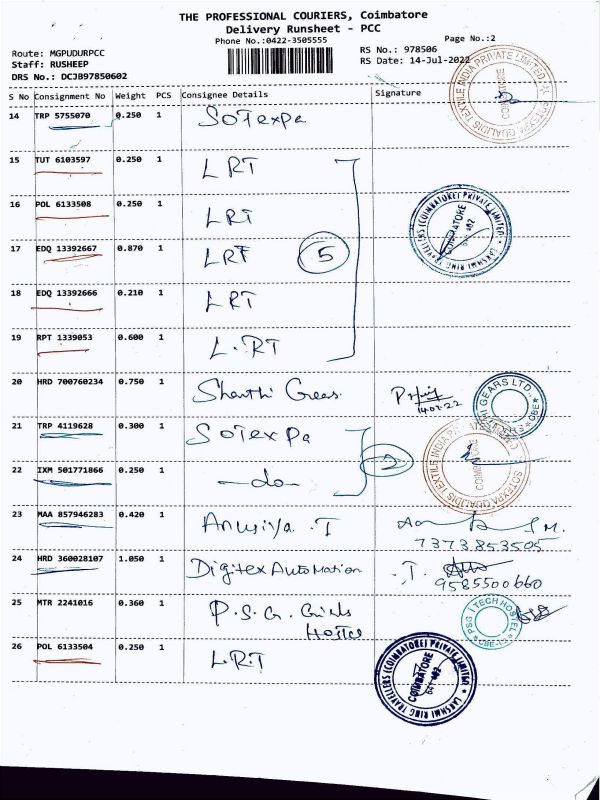 THE PROFESSIONAL COURIERS, Coimbatore
Delivery Runsheet - PCC
Phone No.:0422-3505555
Page No.:2
Route: MGPUDURPCC
RS No.: 978506
Staff: RUSHEEP
RS Date: 14-Jul-2022
DRS No.: DCJB97850602
S No Consignment No Weight PCS Consignee Details Signature
14 TRP 5755070 0.250 1 SOTEXPA
SOTEXPA QUALIDIS TEXTILE INDIA PRIVATE LIMITED
COIMBATORE
15 TUT 6103597 0.250 1 LRT
16 POL 6133508 0.250 1 LRT
LAKSHMI RING TRAVELLERS (COIMBATORE) PRIVATE LIMITED
COIMBATORE
641 402
17 EDQ 13392667 0.870 1 LRT 5
18 EDQ 13392666 0.210 1 LRT
19 RPT 1339053 0.600 1 L.RT
20 HRD 700760234 0.750 1 Shanthi Gears
14.07.22
SHANTHI GEARS LTD., CBE
21 TRP 4119628 0.300 1 SOTEXPA 2
22 IXM 501771866 0.250 1 -do-
SOTEXPA QUALIDIS TEXTILE INDIA PRIVATE LIMITED
COIMBATORE
23 MAA 857946283 0.420 1 Anusiya. T
7373853505
24 HRD 360028107 1.050 1 Digitex Automation
9585500660
25 MTR 2241016 0.360 1 P.S.G. Girls
Hostel
PSG ITECH HOSTEL
26 POL 6133504 0.250 1 LRT
LAKSHMI RING TRAVELLERS (COIMBATORE) PRIVATE LIMITED
COIMBATORE
641 402